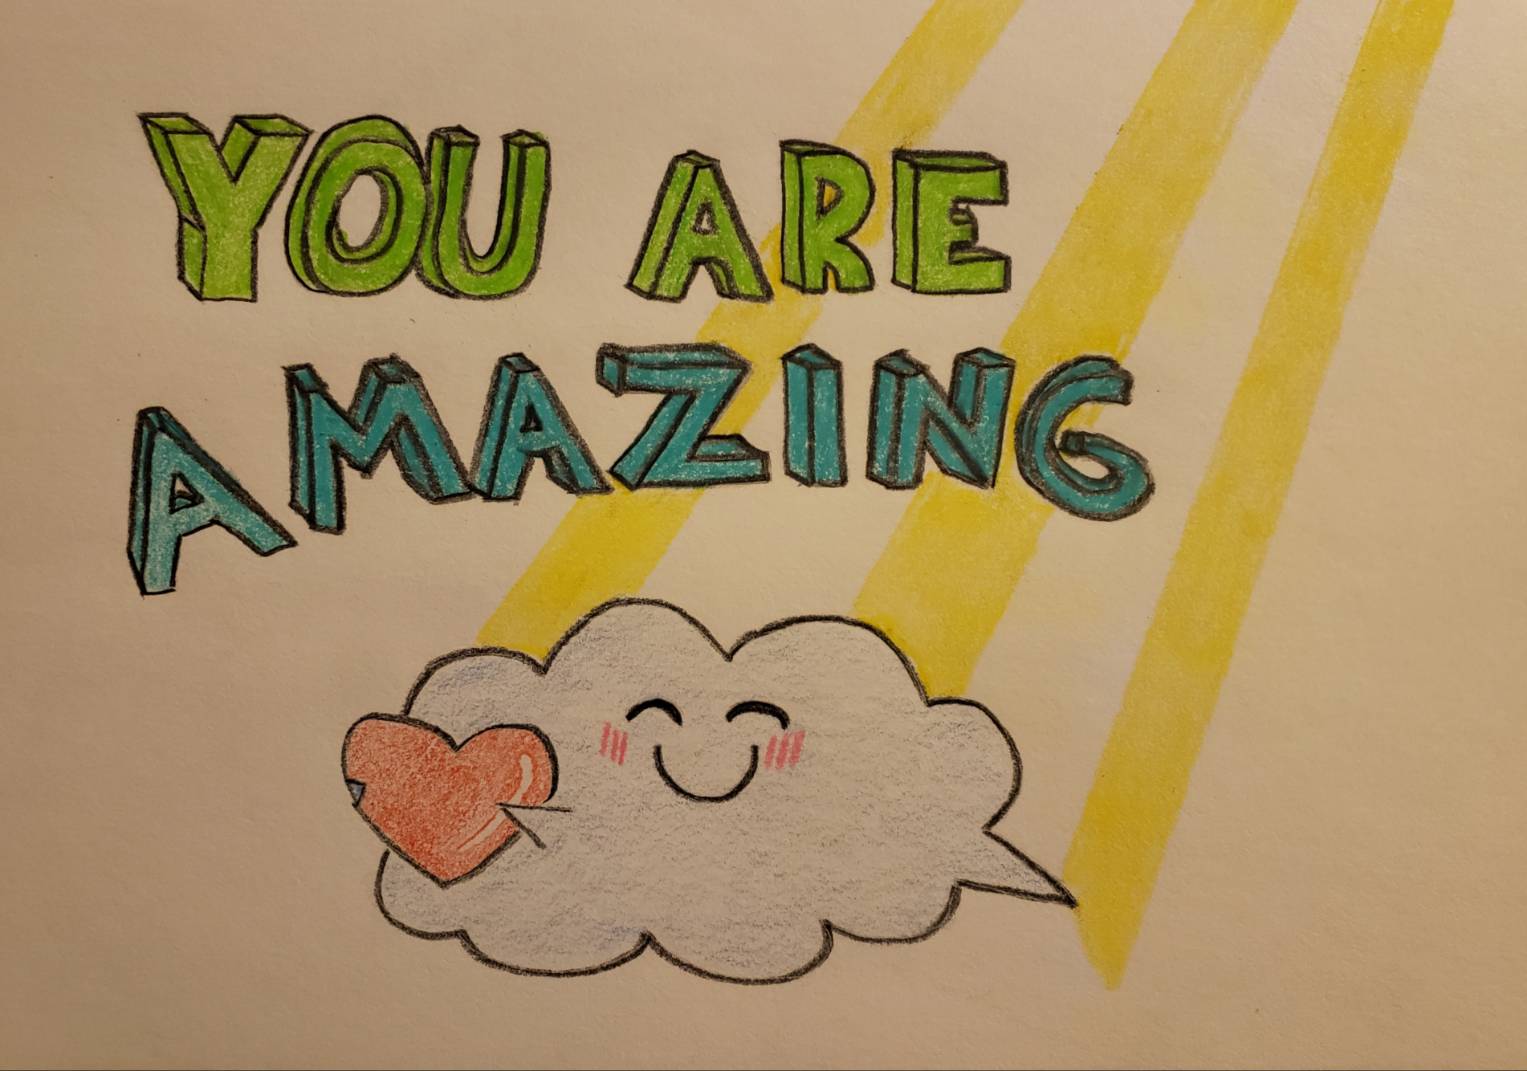 YOU ARE
AMAZING